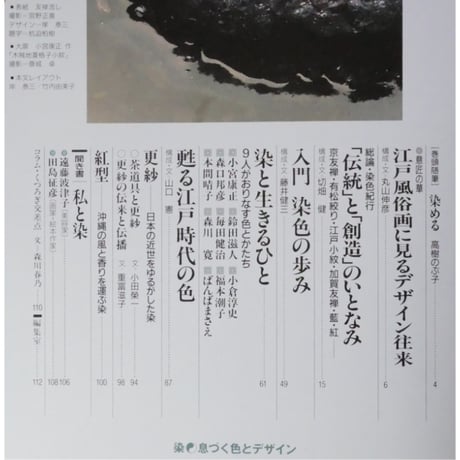 ●表紙 友禅流し
撮影=宮野正喜
デザイン=岸 泰三
題字=杭迫柏樹
●大扉 小宮康正 作
「木賊地寛格子小紋」
撮影=斎城 卓
●本文レイアウト
岸 泰三/竹内由美子
[巻頭随筆] 染める 高樹のぶ子 4
●意匠の華
江戸風俗画に見るデザイン往来
構成・文=丸山伸彦 6
総論・染色紀行
「伝統」と「創造」のいとなみ
京友禅・有松絞り・江戸小紋・加賀友禅・藍・紅
構成・文=切畑 健 15
入門 染色の歩み
構成・文=藤井健三 49
染と生きるひと
9人がおりなす色とかたち 61
■小宮康正 ■鈴田滋人 ■小倉淳史
■森口邦彦 ■毎田健治 ■福本潮子
■本間晴子 ■森川 寛 ■ばんばまさえ
甦る江戸時代の色
構成・文=山口 憲 87
更紗 日本の近世をゆるがした染
○茶道具と更紗 文=小田榮一 94
○更紗の伝来と伝播 文=重富滋子 98
紅型 沖縄の風と香りを運ぶ染 100
聞き書 私と染
●遠藤波津子[美容家] 106
●田島征彦[画家・絵本作家] 108
コラム・くつろぎ交差点 文=森川春乃 110
編集室 112
染 息づく色とデザイン